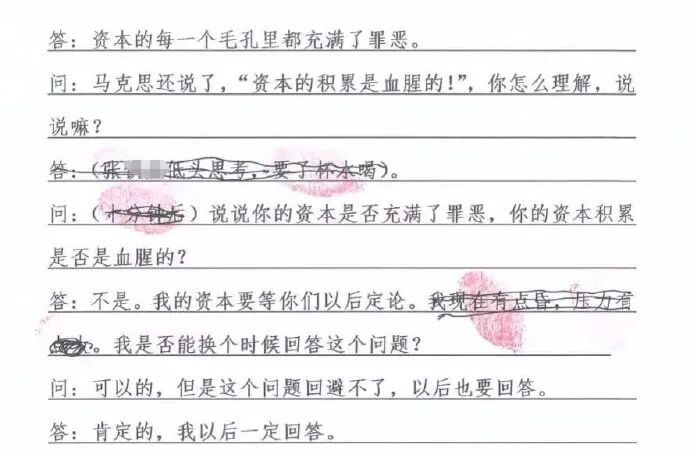 答：资本的每一个毛孔里都充满了罪恶。
问：马克思还说了，“资本的积累是血腥的！”，你怎么理解，说
说嘛？
答：（张 低头思考，要了杯水喝）。
问：（十分钟后）说说你的资本是否充满了罪恶，你的资本积累
是否是血腥的？
答：不是。我的资本要等你们以后定论。我现在有点昏，压力有
。我是否能换个时候回答这个问题？
问：可以的，但是这个问题回避不了，以后也要回答。
答：肯定的，我以后一定回答。